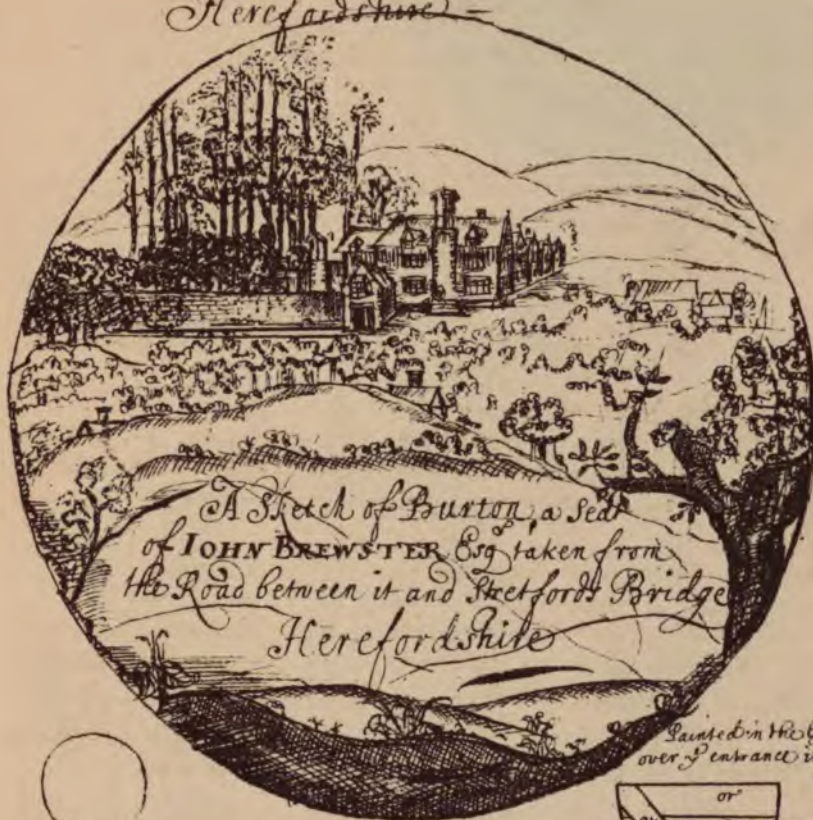 Herefordshire –
A Sketch of Burton, a Seat
of IOHN BREWSTER Esq. taken from
the Road between it and Stretfords Bridge
Herefordshire
Painted in the
over yᵉ entrance
or